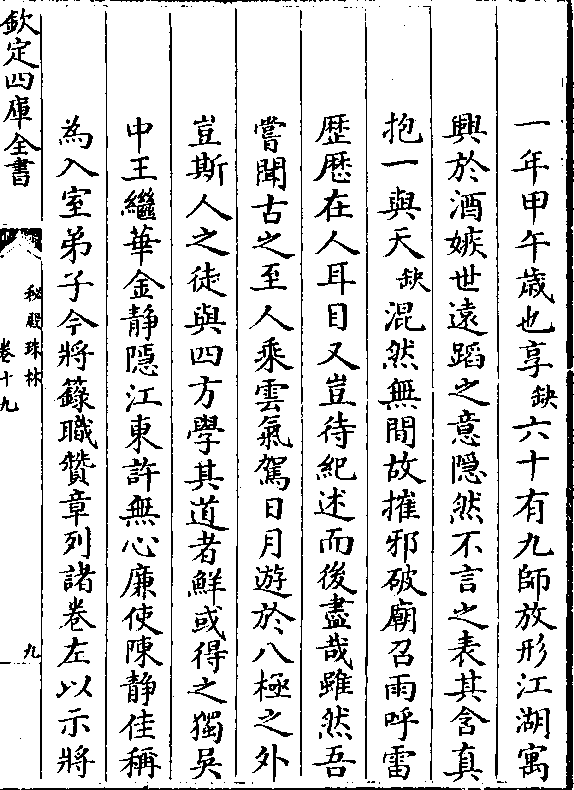 一年甲午歳也享缺六十有九師放形江湖寓
興於酒嫉世遠蹈之意隠然不言之表其含真
抱一與天缺混然無間故摧邪破廟召雨呼雷
歴歴在人耳目又豈待紀述而後盡哉雖然吾
嘗聞古之至人乗雲氣駕日月遊於八極之外
豈斯人之徒與四方學其道者鮮或得之獨吳
中王繼華金静隠江東許無心廉使陳静佳稱
為入室弟子今將籙職贊章列諸卷左以示將
欽定四庫全書
秘殿珠林
卷十九
九